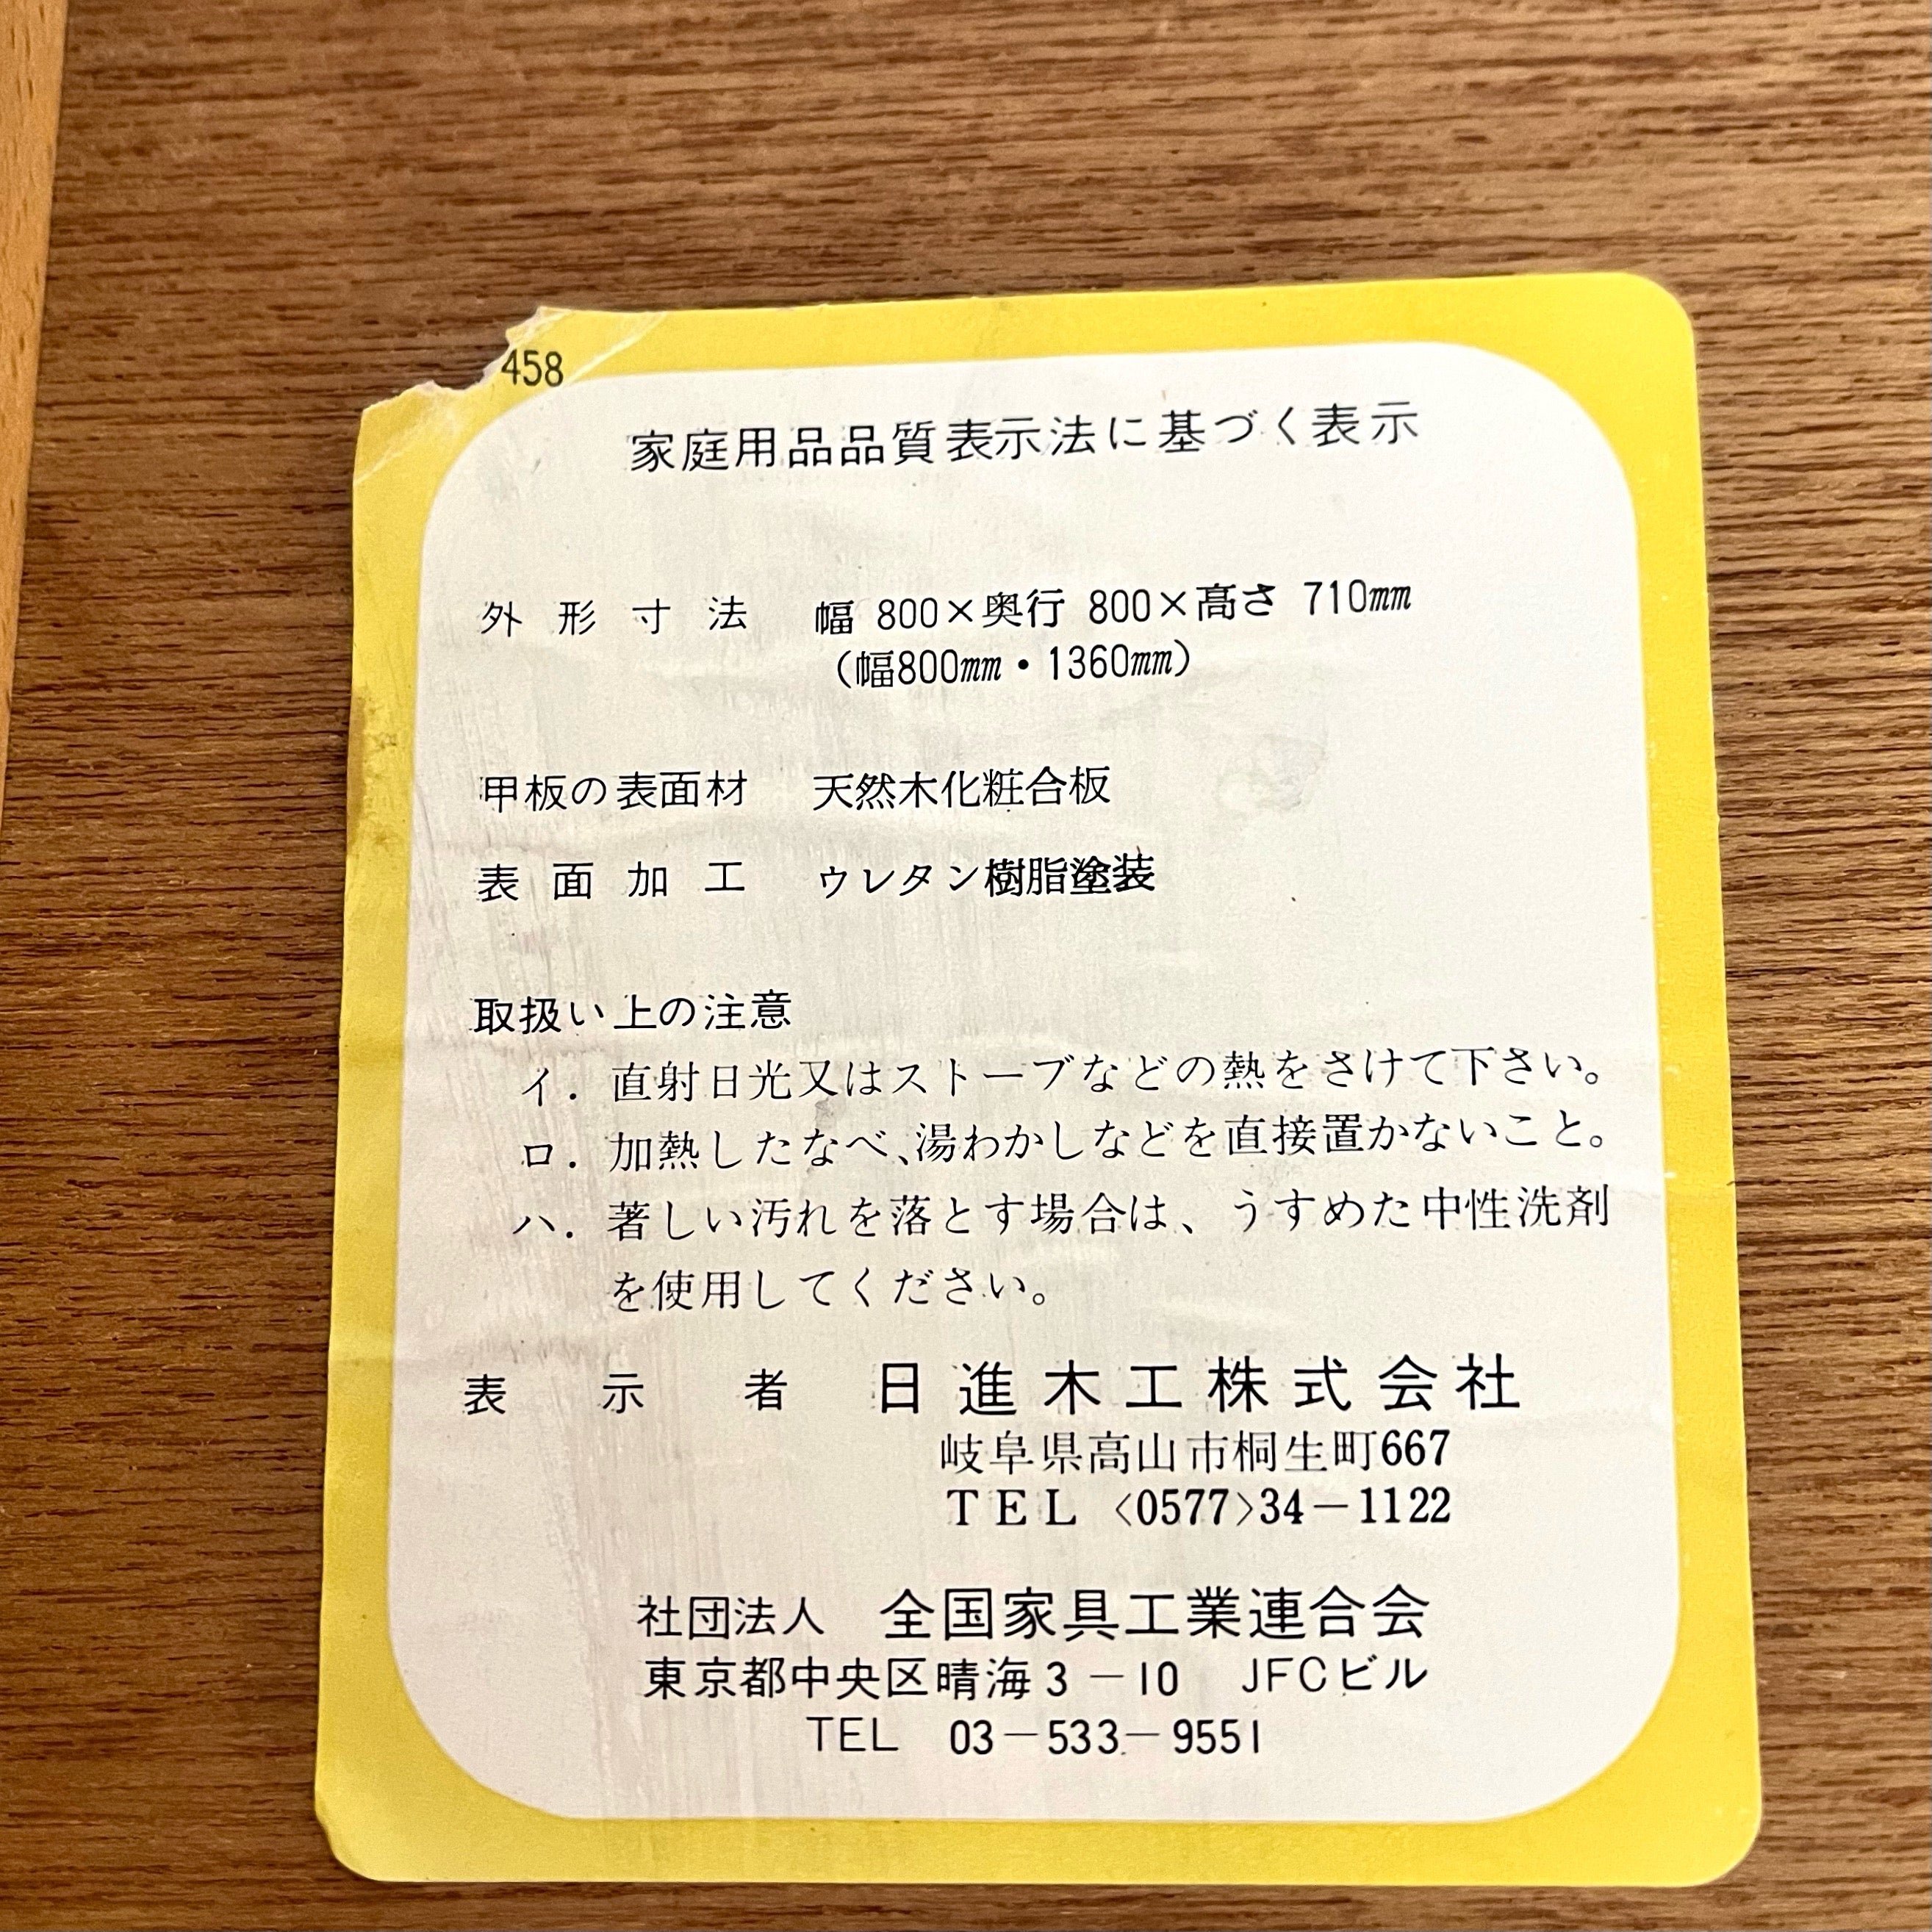 458
家庭用品品質表示法に基づく表示
外形寸法 幅 800×奥行 800×高さ 710mm
(幅800mm・1360mm)
甲板の表面材 天然木化粧合板
表面加工 ウレタン樹脂塗装
取扱い上の注意
イ. 直射日光又はストーブなどの熱をさけて下さい。
ロ. 加熱したなべ、湯わかしなどを直接置かないこと。
ハ. 著しい汚れを落とす場合は、うすめた中性洗剤
を使用してください。
表示者 日進木工株式会社
岐阜県高山市桐生町667
TEL 〈0577〉34-1122
社団法人 全国家具工業連合会
東京都中央区晴海3-10 JFCビル
TEL 03-533-9551